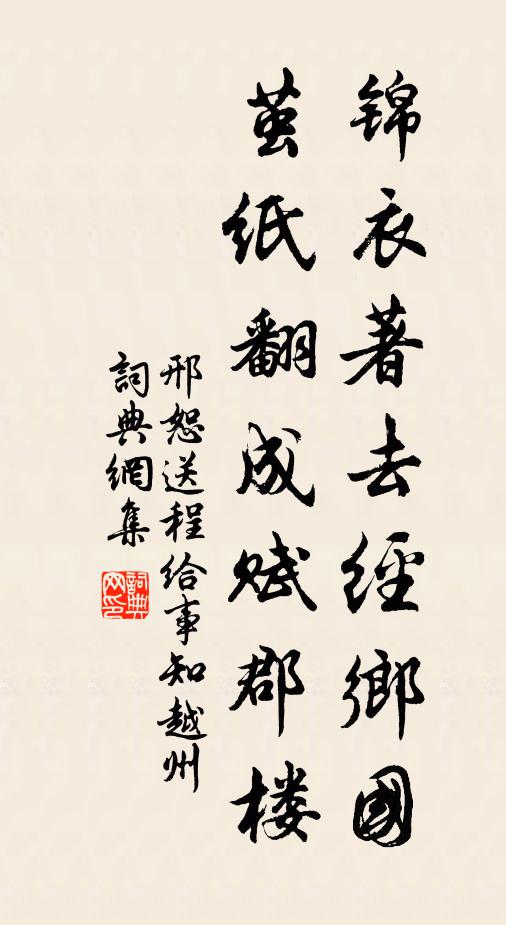 锦衣著去經鄉國
茧纸翻成赋郡楼
邢恕送程给事知越州
詞典網集
詞典网印